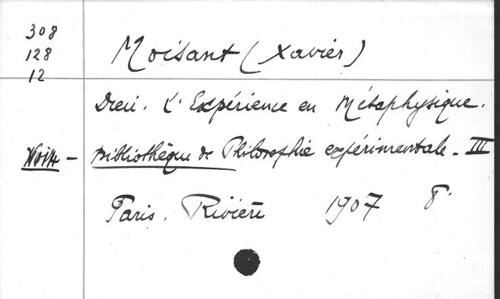 308
128
12
Moisant (Xavier)
Dieu. L'Expérience en Métaphysique.
Voir - Bibliothèque de Philosophie expérimentale - III
Paris. Rivière 1907 8°